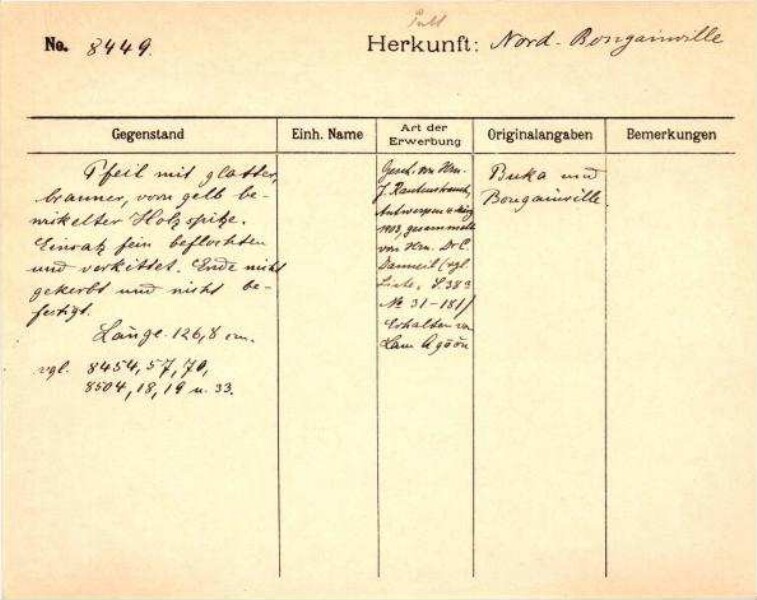 No. 8449. Herkunft: Nord-Bougainville
Gegenstand
Einh. Name
Art der
Erwerbung
Originalangaben
Bemerkungen
Pfeil mit glatter,
brauner, vorn gelb be-
wickelter Holzspitze.
Einsatz fein beflochten
und verkittet. Ende nicht
gekerbt und nicht be-
festigt.
Länge 126,8 cm.
vgl. 8454, 57, 70,
8504, 18, 19 u. 33.
Gesch. von Hrn.
J. Rautenstrauch,
Antwerpen
1903, gesammelt
von Hrn. Dr C.
Danneil (vgl.
Liste, S. 38
No 31-181)
Erhalten von
Buka und
Bougainville.